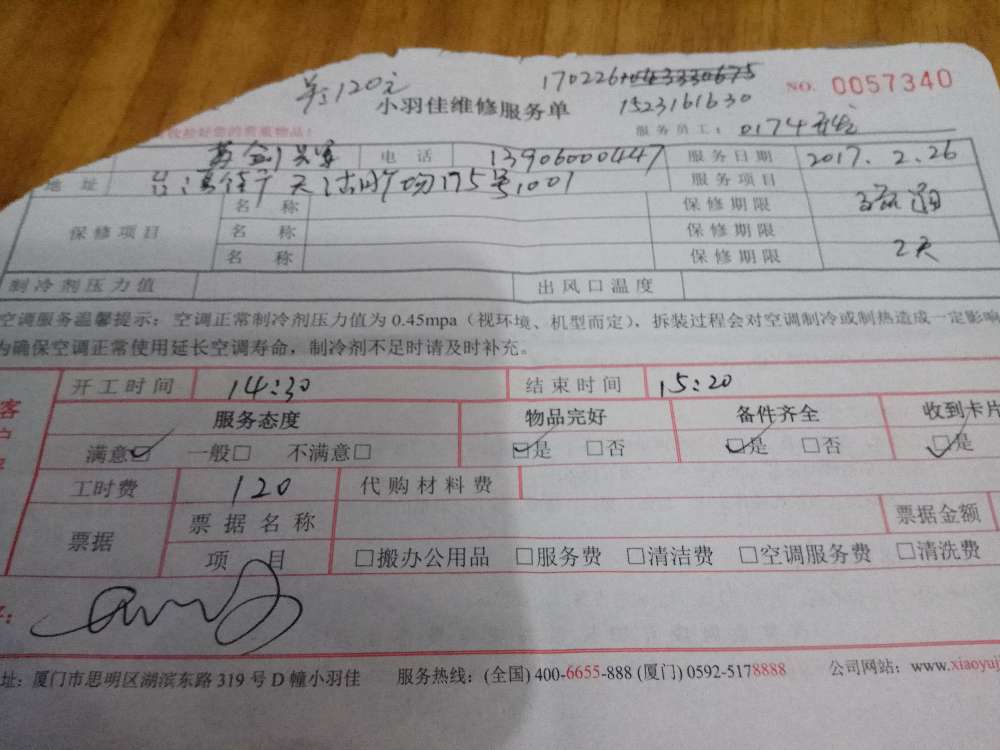 120元 170226
小羽佳维修服务单 1523161630 NO. 0057340
收拾好您的贵重物品! 服务员工: 0174
电话 13906000447 服务日期 2017.2.26
地址 175号1001 服务项目
保修项目 名称 保修期限 疏通
名称 保修期限
名称 保修期限 2天
制冷剂压力值 出风口温度
空调服务温馨提示: 空调正常制冷剂压力值为 0.45mpa (视环境、机型而定), 拆装过程会对空调制冷或制热造成一定影响
为确保空调正常使用延长空调寿命, 制冷剂不足时请及时补充。
开工时间 14:30 结束时间 15:20
客户 服务态度 物品完好 备件齐全 收到卡片
满意☑ 一般□ 不满意□ ☑是 □否 ☑是 □否 ☑是
工时费 120 代购材料费
票据 票据名称 票据金额
项目 □搬办公用品 □服务费 □清洁费 □空调服务费 □清洗费
址: 厦门市思明区湖滨东路 319 号 D 幢小羽佳 服务热线: (全国) 400-6655-888 (厦门) 0592-5178888 公司网站: www.xiaoyuj